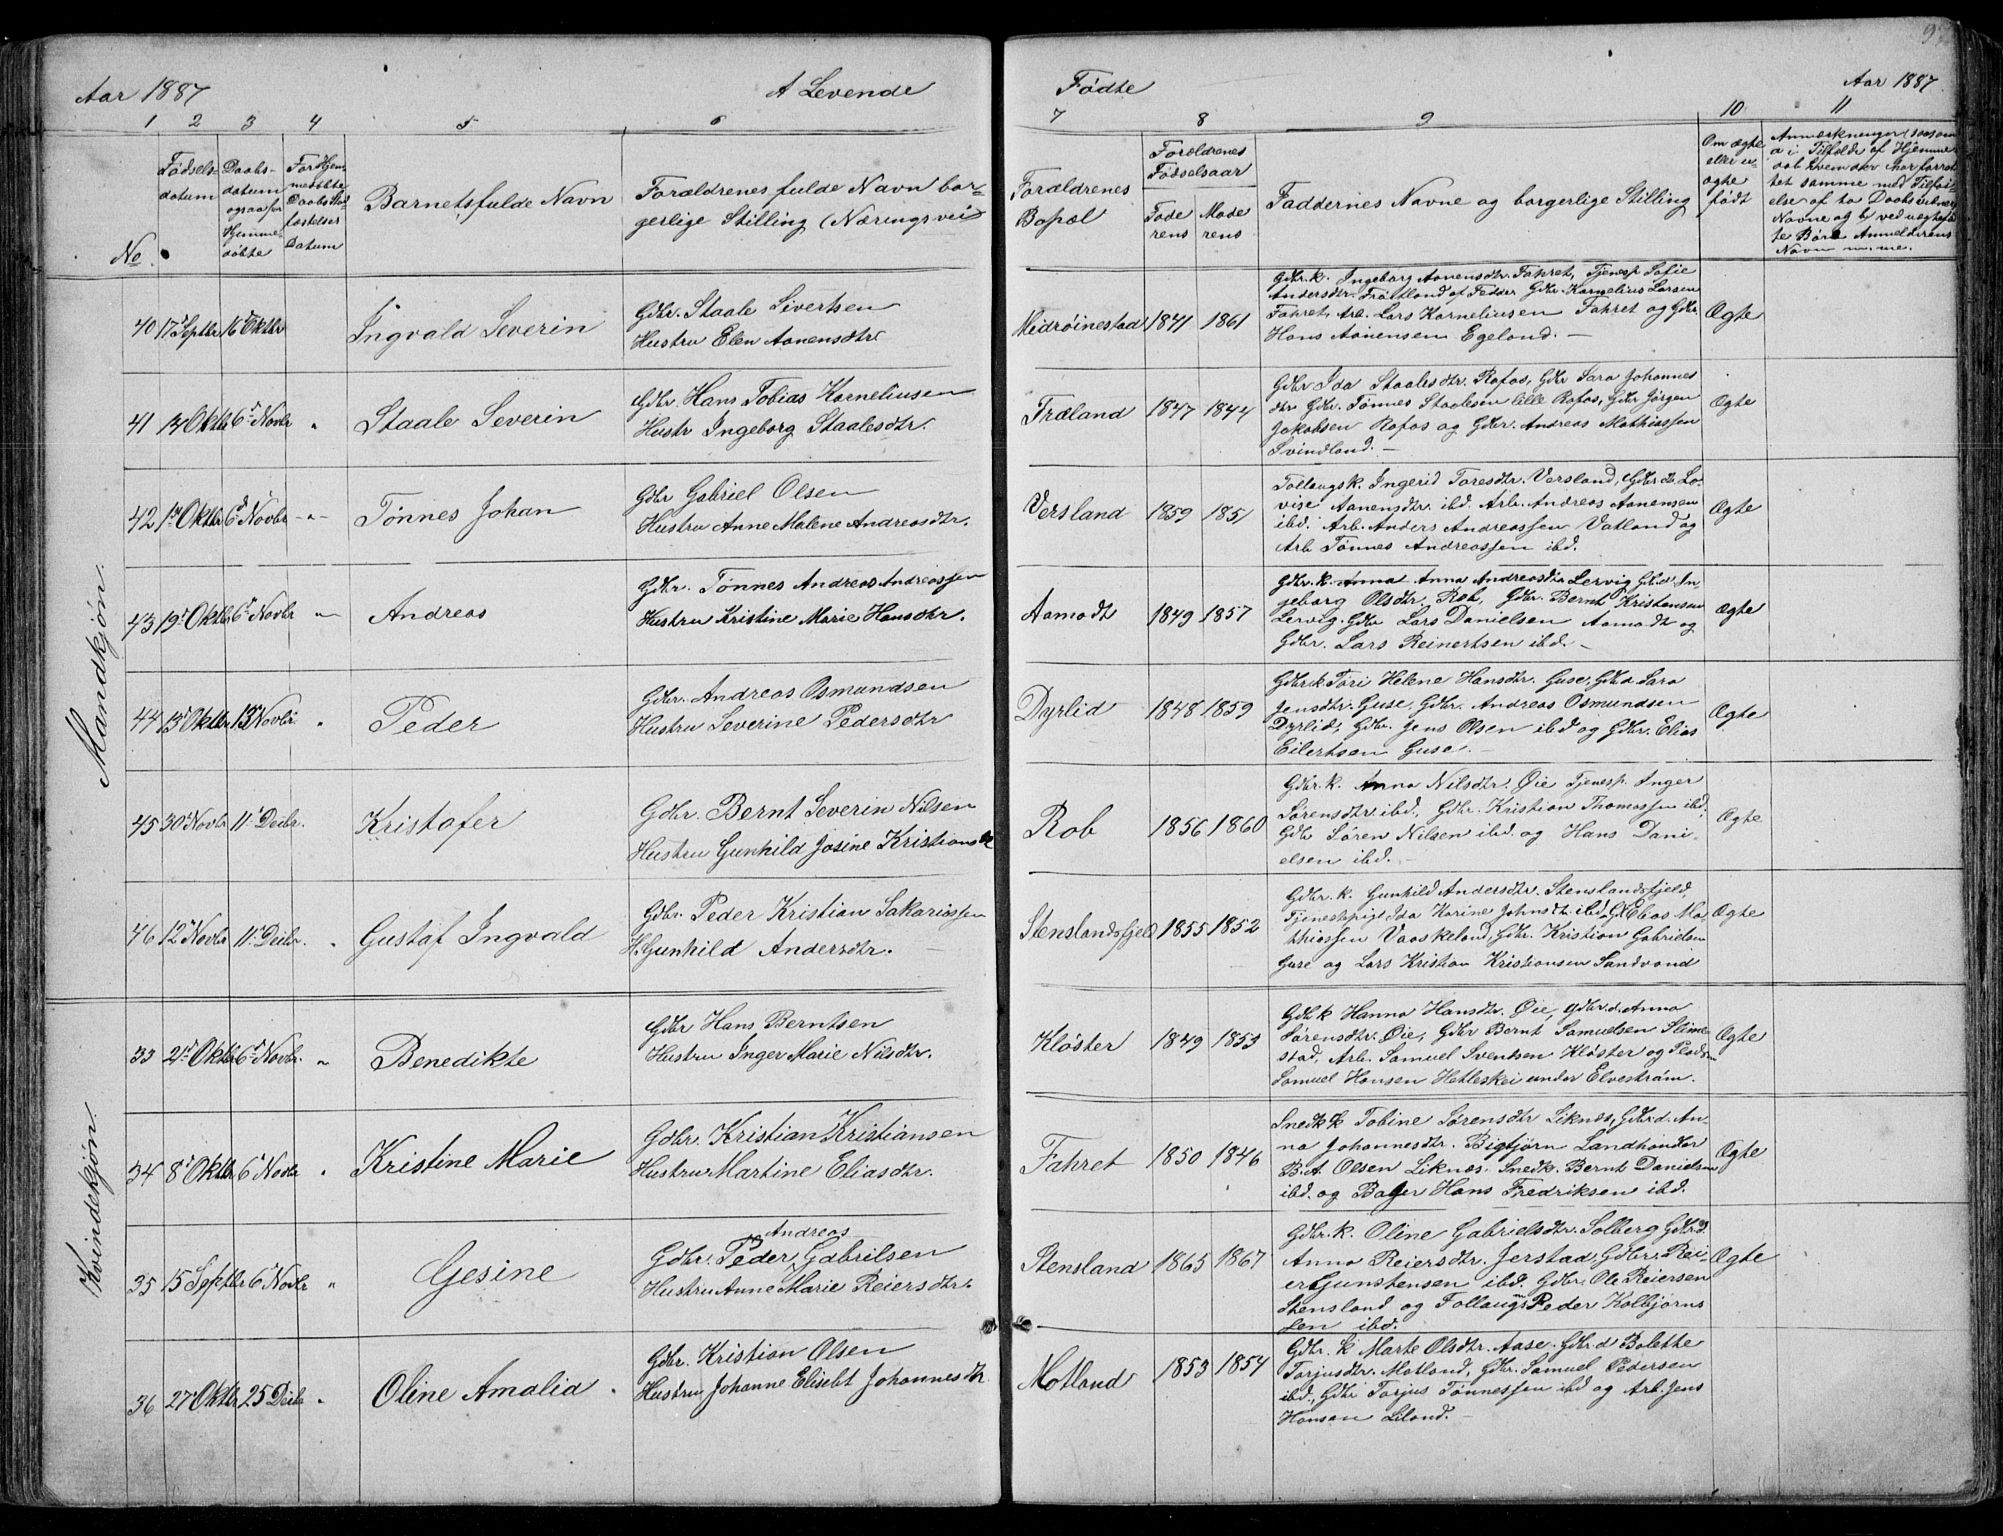 Aar 1887
A Levende
Fødte
Aar 1887
1 2 3 4 5 6 7 8 9 10 11
No
Fødsels-
datum
Daabs-
datum
ogsaa for
Hjemme-
døbte
For Hjem-
medøbte
Daabs Stad-
festelses
Datum
Barnets fulde Navn
Forældrenes fulde Navn bor-
gerlige Stilling (Næringsvei
Forældrenes
Bopæl
Forældrenes
Fødselsaar
Fade
rens
Mode
rens
Faddernes Navne og borgerlige Stilling
Om ægte
eller u-
ægte
født
Anmærkninger (saasom
a i Tilfælde af Hjemme
daab hvem der har forret
tet samme med Tilføi-
else af to Daabsvidners
Navne og b ved uægtefød
te Børn Anmelderens
Navn m.me.
Mandkjøn.
40 17 Septbr 16 Oktbr
Ingvald Severin
Gdbr. Staale Sivertsen
Hustru Elen Aanensdtr
Meidrøinestad 1841 1861
Gdbr.k. Ingeborg Aanensdtr. Fahret, Tjenesp Sofie
Andersdtr. Frøitlond af Fedder Gdbr. Kornelius Larsen
Fahret, Arb. Lars Korneliusen Fahret og Gdbr.
Hans Aanensen Egeland. -
Ægte
41 14 Oktbr 6 Novbr "
Staale Severin
Gdbr. Hans Tobias Korneliusen
Hustr Ingeborg Staalesdtr.
Træland 1847 1844
Gdbr Ida Staalesdtr. Rafos, Gdbr Sara Johannes
dtr Gdbr. Tønnes Staalesen lille Rafos, Gdbr Jørgen
Jakobsen Rafos og Gdbr. Andreas Mathiassen
Svindland. -
Ægte
42 1 Oktbr 6 Novbr - " -
Tønnes Johan
Gdbr Gabriel Olsen
Hustru Anne Malene Andreasdtr.
Versland 1859 1851
Follaugsk. Ingerid Toresdtr. Versland, Gdbr.d. Lo-
vise Aanensdtr. ibd. Arb. Andreas Aanensen
ibd. Arb. Anders Andreassen Vatland og
Arb Tønnes Andreassen ibd.
Ægte
43 19 Oktbr 6 Novbr "
Andreas
Gdbr. Tønnes Andreas Andreassen
Hustru Kristine Marie Hansdtr.
Aamodt 1849 1857
Gdbr.k. Anna Anna Andreasdtr Lervig Gb.d. In-
geborg Olsdtr. Rob, Gdbr. Bernt Kristensen
Lervig. Gdbr Lars Danielsen Aamodt og
Gdbr. Lars Reinertsen ibd. -
Ægte
44 13 Oktbr 13 Novbr "
Peder
Gdbr. Andreas Osmundsen
Hustru Severine Pedersdtr
Dyrlid 1848 1859
Gdbr.k Tori Helene Hansdtr. Guse, Gbd Sara
Jensdtr. Guse, Gdbr. Andreas Osmundsen
Dyrlid, Gdbr. Jens Olsen ibd og Gdbr. Elias
Eilertsen Guse. -
Ægte
45 30 Novbr 11 Decbr.
Kristofer
Gdbr. Bernt Severin Nilsen
Hustru Gunhild Josine Kristiansdtr
Rob 1856 1860
Gdbr.k. Anna Nilsdtr. Øie Tjenesp. Inger
Sørensdtr ibd., Gdbr. Kristian Thomassen ibd.
Gdbr Søren Nilsen ibd. og Hans Dani-
elsen ibd. -
Ægte
46 12 Novbr 11 Decbr. "
Gustaf Ingvald
Gdbr. Peder Kristian Sakariassen
H. Gunhild Andersdtr. -
Stenslandsfjeld 1855 1852
Gdbr. k. Gunhild Andersdtr. Stenslandsfjeld
Tjenestepige Ida Karine Johnsdtr. ibd, G. Elias Ma-
thiassen Vaaskeland, Gdbr. Kristian Gabrielsen
Guse og Lars Kristian Kristiansen Sandvand
Ægte
Kvindekjøn.
33 2 Oktbr 6 Novbr. "
Benedikte
Gdbr Hans Berntsen
Hustru Inger Marie Nilsdtr.
Kløster 1849 1853
Gdb k Hanna Hansdtr. Øie, gdbr.d. Anna
Sørensdtr. Øie, Gdbr Bernt Samuelsen Slime-
stad, Arb. Samuel Svendsen Kløster og Pladsm
Samuel Hansen Hetleskei under Elvestrøm.
Ægte
34 8 Oktbr 6 Novbr "
Kristine Marie
Gdbr. Kristian Kristiansen
Hustru Martine Eliasdtr.
Fahret 1850 1846
Snedk k Tobine Sørensdtr Liknes, Gdbr.d. An-
na Johannesdtr. Bigfjørn Landhandler
B.A. Olsen Liknes. Snedk. Bernt Danielsen
ibd. og Bager Hans Fredriksen ibd.
Ægte
35 15 Septbr 6 Novbr "
Gesine
Gdbr. Peder Andreas Gabrilsen
Hustru Anne Marie Reiersdtr.
Stensland 1865 1867
Gdbr. k. Oline Gabrielsdtr. Solberg Gdbr.d
Anna Reiersdtr. Jerstad, Gdbr. Rei-
er Gunstensen ibd. Gdbr. Ole Reiersen
Stensland og Follaugsm Peder Kolbjørns
sen ibd.
Ægte
36 27 Oktbr 25 Decbr "
Oline Amalia
Gdbr. Kristian Olsen
Hustru Johanne Elisebt Johannesdtr
Motland 1853 1854
Gdbr. k Marte Olsdtr. Aase. Gdbr d Bolette
Torjusdtr. Motland, Gdbr. Samuel Pedersen
ibd., Gdbr Torjus Tønnessen ibd og Arb. Jens
Hansen Liland. -